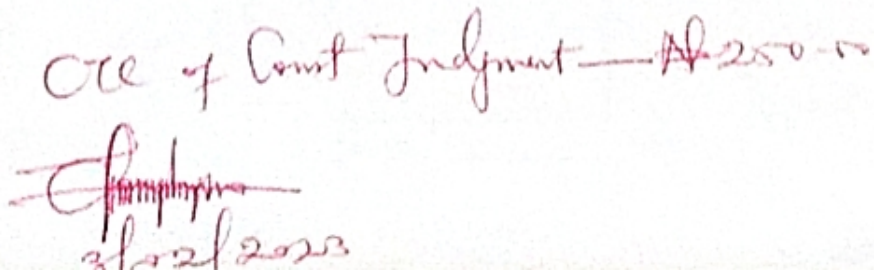 CTC of Court Judgment — ₦250.00
3/02/2023